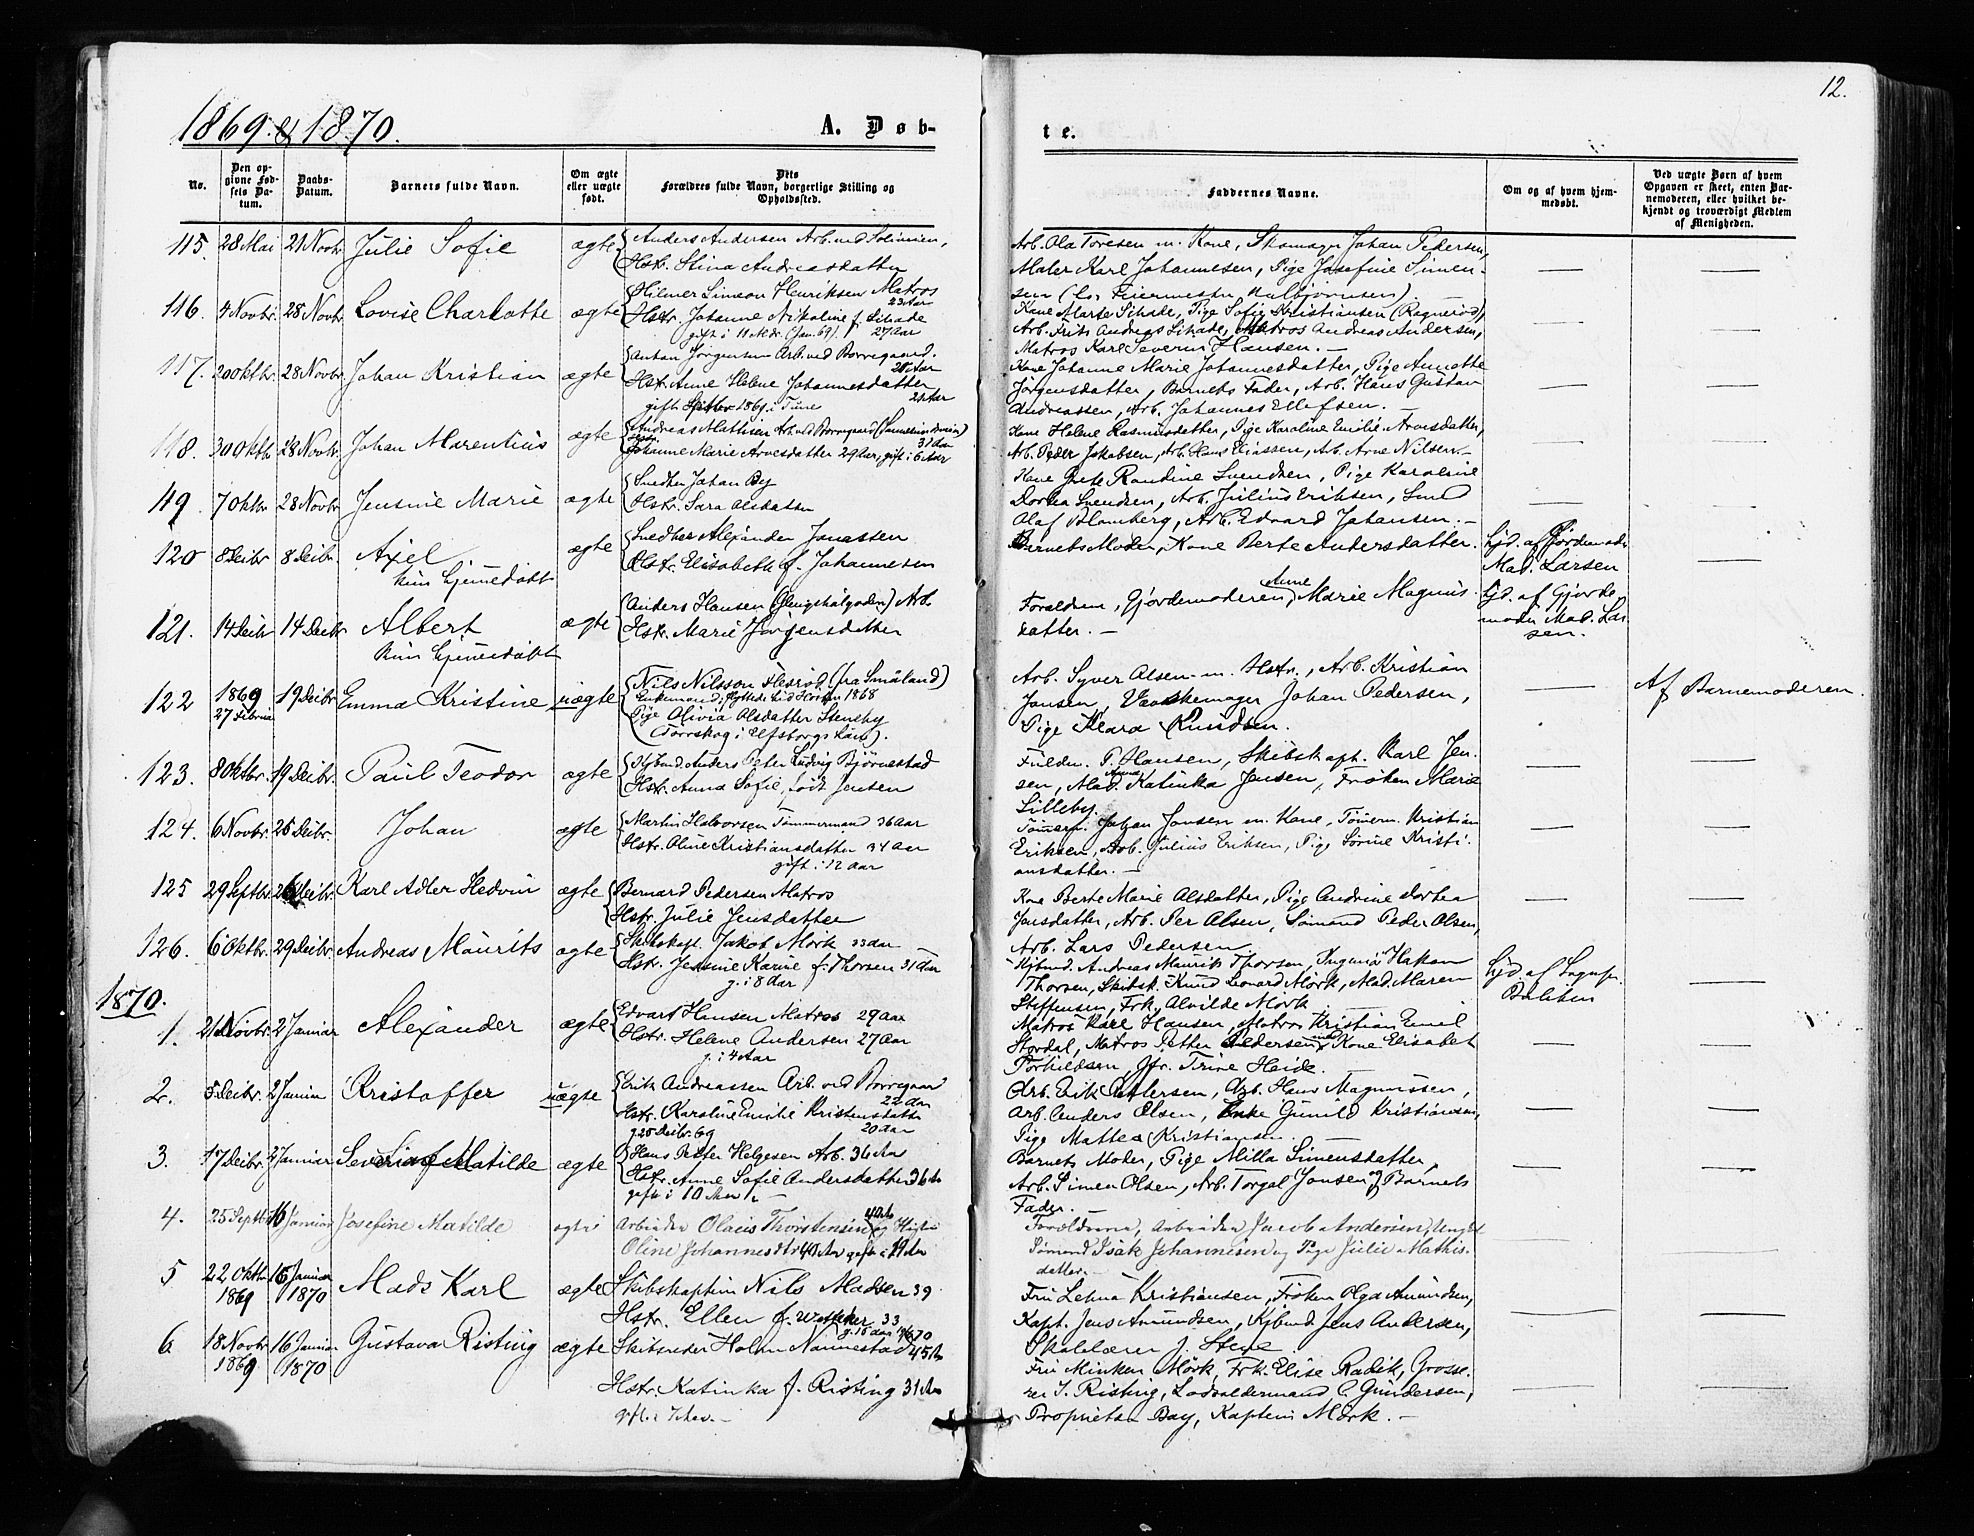 12.
1869 & 1870.
A. Døb-
te.
No.
Den op-
givne Fød-
sels Da-
tum.
Daabs-
Datum.
Barnets fulde Navn.
Om ægte
eller uægte
født.
Dets
Forældres fulde Navn, borgerlige Stilling og
Opholdssted.
Faddernes Navne.
Om og af hvem hjem-
medøbt.
Ved uægte Børn af hvem
Opgaven er skeet, enten Bar-
nemoderen, eller hvilket be-
kjendt og troværdigt Medlem
af Menigheden.
115. 28 Mai 21 Novbr Julie Sofie ægte
Anders Andersen Arb. ved
Hstr. Stina Andreasdatter
Arb. Ola Toresen m. Kone, Skomager Johan Pedersen,
Maler Karl Johannesen, Pige Josefine Simen-
sen
116. 4 Novbr. 28 Novbr Lovise Charlotte ægte
Hilmer Simeon Henriksen Matros
23 Aar
Hstr. Johanne Nikoline f. Lihade
gift i 11 Mdr. (Jan. 69). 27 Aar
Kone Marte Lihade, Pige Sofie Kristiansen
Arb. Frits Andreas Lihade, Matros Andreas Andersen,
Matros Karl Severin Hansen. —
117. 20 Oktbr. 28 Novbr. Johan Kristian ægte
Anton Jørgensen Arb. ved Borregaard.
Hstr. Anne Helene Johannesdatter
21 Aar
1869 i Tune
Kone Johanne Marie Johannesdatter, Pige Annette
Jørgensdatter, Barnets Fader, Arb. Hans Gustav
Andreassen, Arb. Johannes Ellefsen. —
118. 30 Oktb 28 Novbr. Johan Marentius ægte
Andreas Mathisen Arb. ved Borregaard
31 Aar
Johanne Marie Arvesdatter 29 Aar, gift i 6 Aar
Kone Helene Rasmusdatter, Pige Karoline Emilie Arvesdatter,
Arb. Peder Jakobsen, Arb. Hans Eliassen, Arb. Arne Nilsen. —
119. 7 Oktbr 28 Novbr. Jensine Marie ægte
Snedker Johan By
Hstr. Sara Olsdatter
Kone Grete Randine Svendsen, Pige Karoline
Dortea Svendsen, Arb. Julius Eriksen, Smed
Olaf Blomberg, Arb. Edvard Johansen. —
120 8 Deibr 8 Deibr. Axel ægte
kun hjemmedøbt
Snedker Alexander Jonassen
Hstr. Elisabeth f. Johannesen
Barnets Moder, Kone Berte Andersdatter.
hjd. af Gjordemodr
Mad. Larsen
121. 14 Deibr 14 Deibr. Albert ægte
kun hjemmedøbt
Anders Hansen Arb.
Hstr. Marie Jørgensdatter
Forældren, Gjordemoderen, Anne Marie Magnus-
datter. —
hjd. af Gjorde-
moder Mad. Lar-
sen.
122 1869
27 Februar 19 Deibr. Emma Kristine uægte
Nils Nilsson (fra Småland)
1868
Pige Olivia Olsdatter Stensby
(Torrskog i Elfsborgs Län).
Arb. Syver Olsen m. Hstr., Arb. Kristian
Jansen, Johan Pedersen,
Pige Klara Knudsen.
Af Barnemoderen.
123. 8 Oktbr. 19 Deibr. Paul Teodor ægte
Kjbmd. Anders Peter Ludvig Bjørnestad
Hstr. Anna Sofie, født Jensen
P. Hansen, Skibskapt. Karl Jen-
sen, Mad. Anna Katinka Jensen, Frøken Marie
Lilleby.
124. 6 Novbr. 26 Deibr. Johan ægte
Martin Halvorsen Tømmermand 36 Aar
Hstr. Oline Kristiansdatter 34 Aar
gift i 12 Aar
Tømerm. Johan Jansen m. Kone, Tømerm. Kristian
Eriksen, Arb. Julius Eriksen, Pige Sorine Kristi-
ansdatter. —
125 29 Septbr 26 Deibr. Karl Adler Hedvin ægte
Bernard Pedersen Matros
Hstr. Julie Jensdatter
Kone Berte Marie Olsdatter, Pige Andrine Dortea
Jensdatter, Arb. Per Olsen, Sømand Peder Olsen,
Arb. Lars Pedersen
126. 6 Oktbr. 29 Deibr. Andreas Maurits ægte
Skibskapt. Jakob Mørk 33 aar
Hstr. Jensine Karine f. Thorsen 31 Aar
g. i 8 Aar
Kjbmd. Andreas Maurits Thorsen, Ingeniør Hakon
Thorsen, Skibsk. Knud Leonard Mørk, Mad. Maren
Steffensen, Frk. Alvilde Mørk
hjd. af Sognepr.
1870.
1. 21 Novbr. 2 Januar Alexander ægte
Edvart Hansen Matros 29 aar
Hstr. Helene Andersen 27 Aar
g. i 4 Aar
Matros Karl Hansen, Matros Kristian Emil
Stordal, Matros Petter Pedersen, Kone Elisabet
Torkildsen, Jfr. Trine Heide.
2. 5 Deibr. 2 Januar Kristoffer uægte
Erik Andreassen Arb. ved Borregaar
22 Aar
Hstr. Karoline Emilie Kristensdatter
g. 25 Deibr. 69 20 aar
Arb. Erik Pettersen, Arb. Hans Magnussen,
Arb. Anders Olsen, Enke Gunild Kristiansen,
Pige Mattea Kristiansen.
3. 17 Deibr. 2 Januar Severine Matilde ægte
Hans Petter Helgesen Arb. 36 Aar
Hstr. Anne Sofie Andersdatter 36 A
gift i 10 Aar. —
Barnets Moder, Pige Milla Simensdatter,
Arb. Simen Olsen, Arb. Torgal Jansen og Barnets
Fader. —
4. 25 Septbr 16 Januar Josefine Matilde ægte
Arbeider Olaus Thorstensen 40 Aar og Hustru
Oline Johannesdtr 40 Aar gift i 19 Aar
Forældrene, Arbeider Jacob Andersen, Ungkl
Sømand Isak Johannesen og Pige Julie Mathis-
datter. —
5 22 Oktbr
1869 16 Januar
1870 Mads Karl ægte
Skibskaptein Nils Madsen 39
Hstr. Ellen f. 33
Fru Lehna Kristiansen, Frøken Olga Amundsen,
Kapt. Jens Amundsen, Kjbmd Jens Andersen,
Skolelærer J. Stene
6. 18 Novbr
1869 16 Januar
1870 Gustava Risting ægte
Skibsreder Holm Nannestad 45 A
Hstr. Katinka f. Risting 31 Aar
gift i 7 Aar. —
Fru Minken Mørk, Frk. Elise Radik, Grosse-
rer S. Risting, Lodsoldermand C. Gundersen,
Proprietær Bay, Kaptein Mørk. —